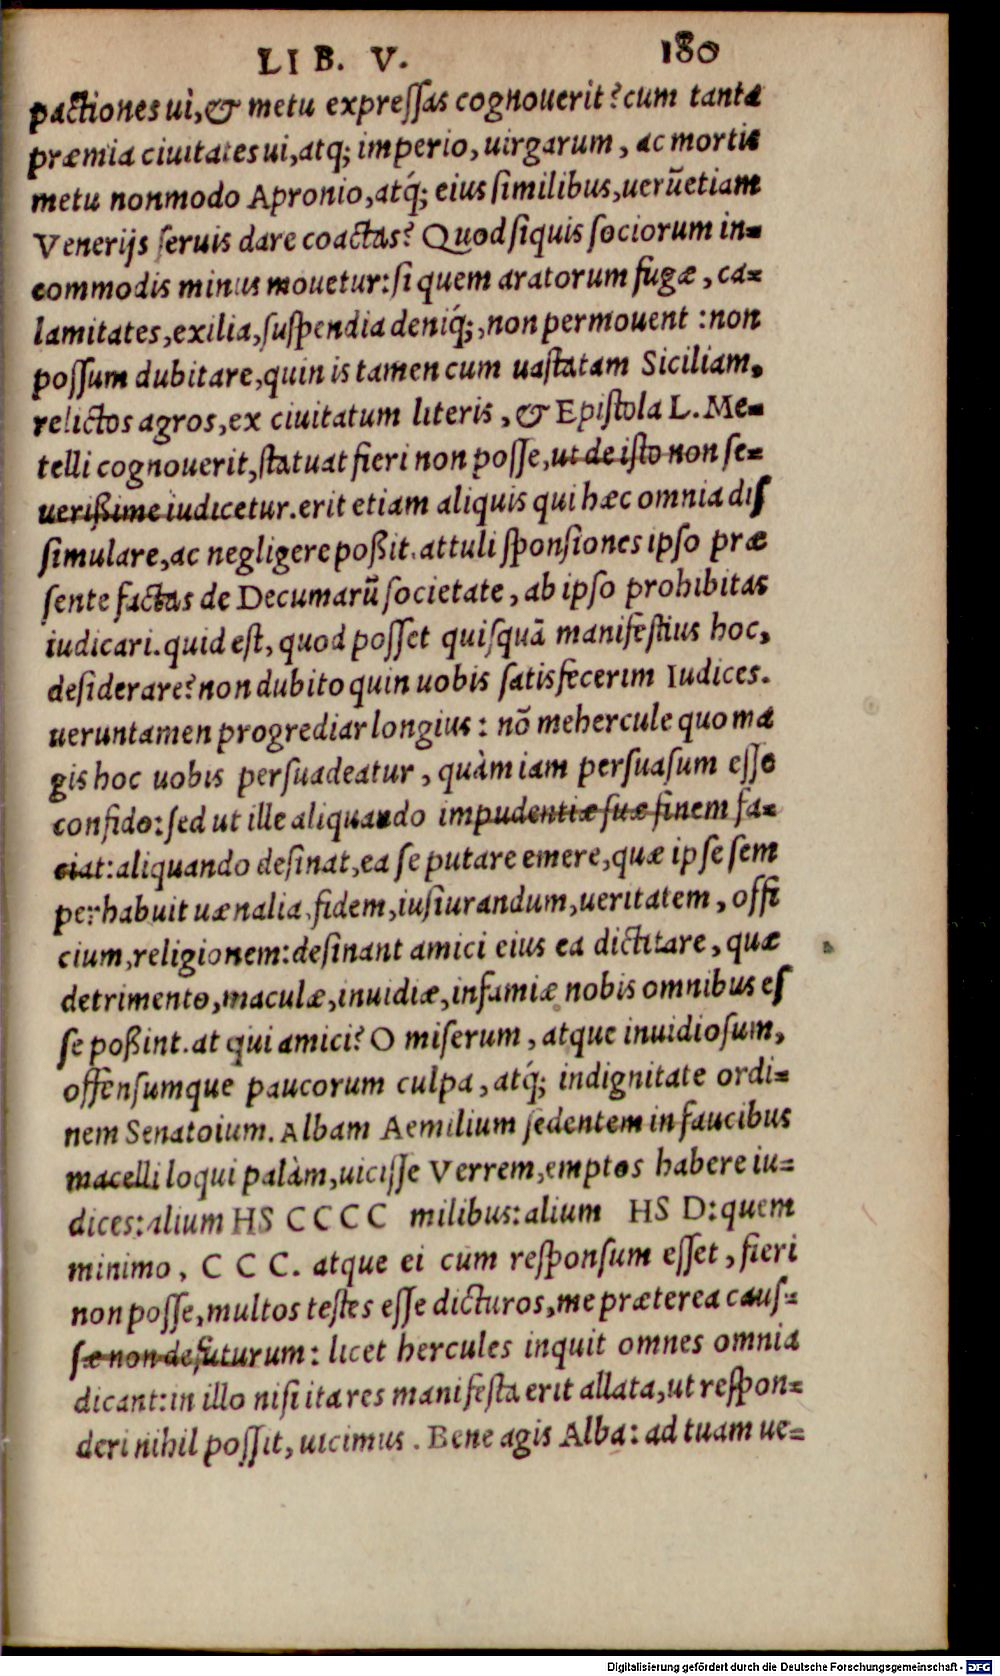 LIB. V. 180
pactiones uì, & metu expreſſas cognouerit? cum tanta
præmia ciuitates ui, atq; imperio, uirgarum, ac mortis
metu nonmodo Apronio, atq́; eius ſimilibus, uerũetiam
Venerijs ſeruis dare coactas? Quod ſiquis ſociorum in=
commodis minus mouetur: ſi quem aratorum fugæ, ca=
lamitates, exilia, ſuſpendia deniq́;, non permouent: non
poſſum dubitare, quin is tamen cum uaſtatam Siciliam,
relictos agros, ex ciuitatum literis, & Epiſtola L. Me=
telli cognouerit, ſtatuat fieri non poſſe, ut de iſto non ſe=
ueriſſime iudicetur. erit etiam aliquis qui hæc omnia diſ
ſimulare, ac negligere poßit. attuli ſponſiones ipſo præ
ſente factas de Decumarũ ſocietate, ab ipſo prohibitas
iudicari. quid eſt, quod poſſet quiſquã manifeſtius hoc,
deſiderare? non dubito quin uobis ſatisfecerim Iudices.
ueruntamen progrediar longius: nõ mehercule quo ma
gis hoc uobis perſuadeatur, quàm iam perſuaſum eſſe
confido: ſed ut ille aliquando impudentiæ ſuæ finem fa=
ciat: aliquando deſinat, ea ſe putare emere, quæ ipſe ſem
per habuit uænalia, fidem, iuſiurandum, ueritatem, offi
cium, religionem: deſinant amici eius ea dictitare, quæ
detrimento, maculæ, inuidiæ, infamiæ nobis omnibus eſ
ſe poßint. at qui amici? O miſerum, atque inuidioſum,
offenſumque paucorum culpa, atq́; indignitate ordi=
nem Senatoium. Albam Aemilium ſedentem in faucibus
macelli loqui palàm, uiciſſe Verrem, emptos habere iu=
dices: alium HS CCCC milibus: alium HS D: quem
minimo, C C C. atque ei cum reſponſum eſſet, fieri
non poſſe, multos teſtes eſſe dicturos, me præterea cauſ=
ſæ non defuturum: licet hercules inquit omnes omnia
dicant: in illo niſi ita res manifeſta erit allata, ut reſpon=
deri nihil poſſit, uicimus. Bene agis Alba: ad tuam ue=
Digitalisierung gefördert durch die Deutsche Forschungsgemeinschaft - DFG